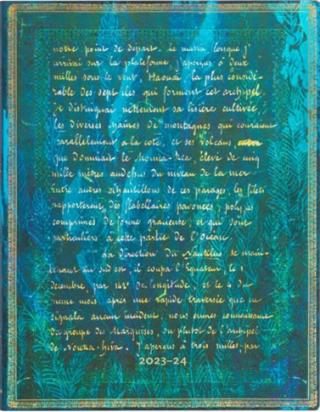 notre point de départ. Le matin lorsque j'
arrivai sur la plateforme, j'aperçus à deux
milles sous le vent, Haouaï, la plus considé-
rable des sept iles qui forment cet archipel.
Je distinguai nettement sa lisière cultivée,
les diverses chaines de montagnes qui couraient
parallèlement à la côte, et ses volcans
que dominait le Mouna-Rea, élevé de cinq
mille mètres au dessus du niveau de la mer
Entre autres échantillons de ces parages, les filets
rapportèrent des flabellaires pavonées, polypes
comprimés de forme gracieuse, et qui sont
particuliers à cette partie de l'Océan.
La direction du Nautilus se main-
tenant au sud est, il coupa l'Equateur, le 1
décembre, par 142° de longitude, et le 4 du
même mois, après une rapide traversée que ne
signala aucun incident, nous eûmes connaissance
du groupe des Marquises, ou plutôt de l'archipel
de Nouka-hiva. J'aperçus à trois milles, par
2023–24